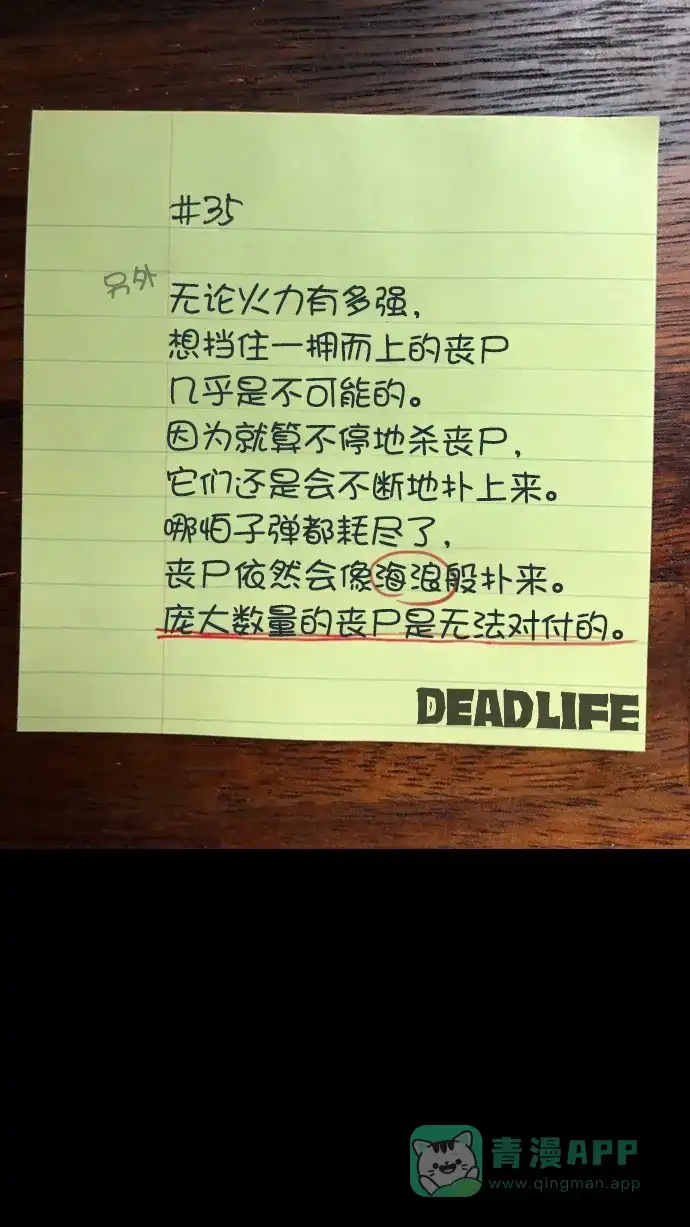 #35
另外
无论火力有多强，
想挡住一拥而上的丧尸
几乎是不可能的。
因为就算不停地杀丧尸，
它们还是会不断地扑上来。
哪怕子弹都耗尽了，
丧尸依然会像海浪般扑来。
庞大数量的丧尸是无法对付的。
DEADLIFE
青漫APP
www.qingman.app